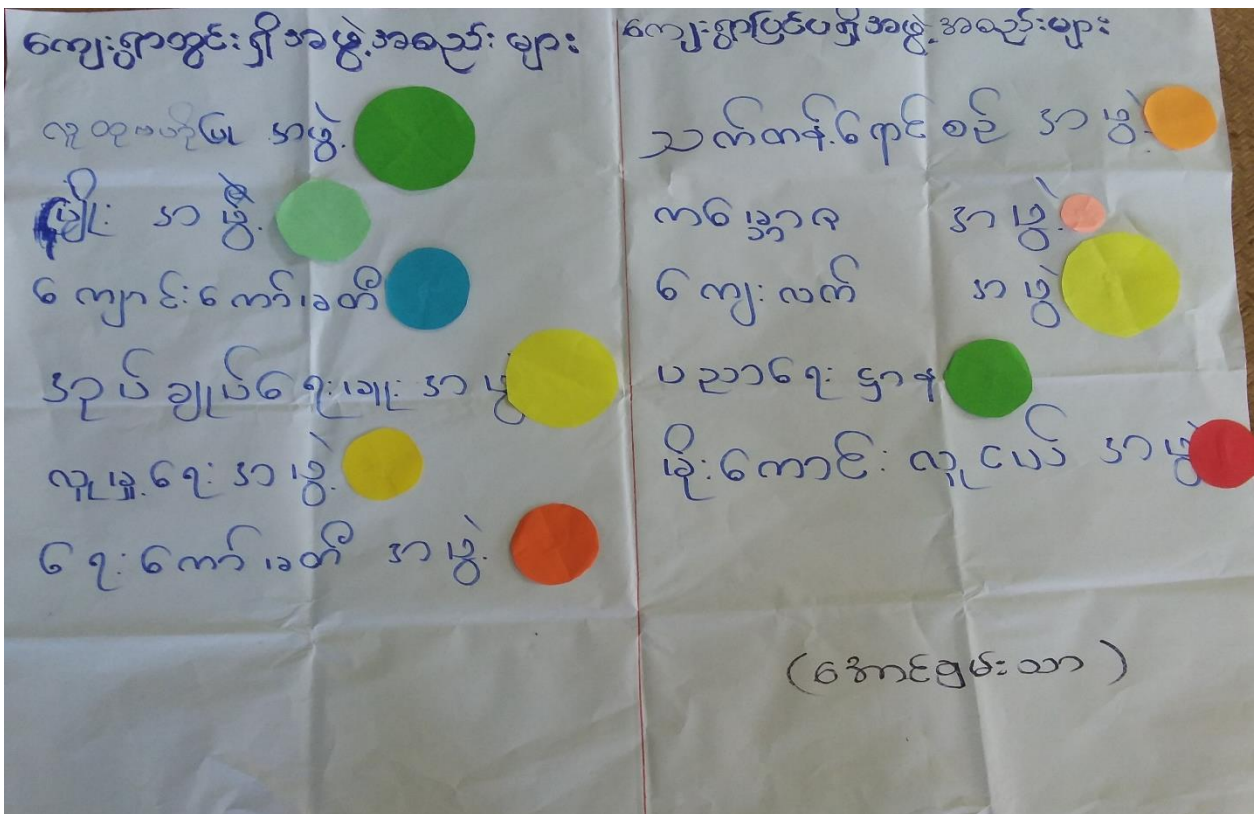 ကျေးရွာတွင်းရှိအဖွဲ့အစည်းများ
လူထုဗဟိုပြု အဖွဲ့
မျိုး အဖွဲ့
ကျောင်းကော်မတီ
အုပ်ချုပ်ရေးမှုး အဖွဲ့
လူမှု့ရေး အဖွဲ့
ရေးကော်မတီ အဖွဲ့
ကျေးရွာပြင်ပရှိအဖွဲ့အစည်းများ
သက်တန့်ရောင်စဉ် အဖွဲ့
ကမ္ဘောဇ အဖွဲ့
ကျေးလက် အဖွဲ့
ပညာရေးဌာန
မိုးကောင်း လူငယ် အဖွဲ့
(အောင်ချမ်းသာ)